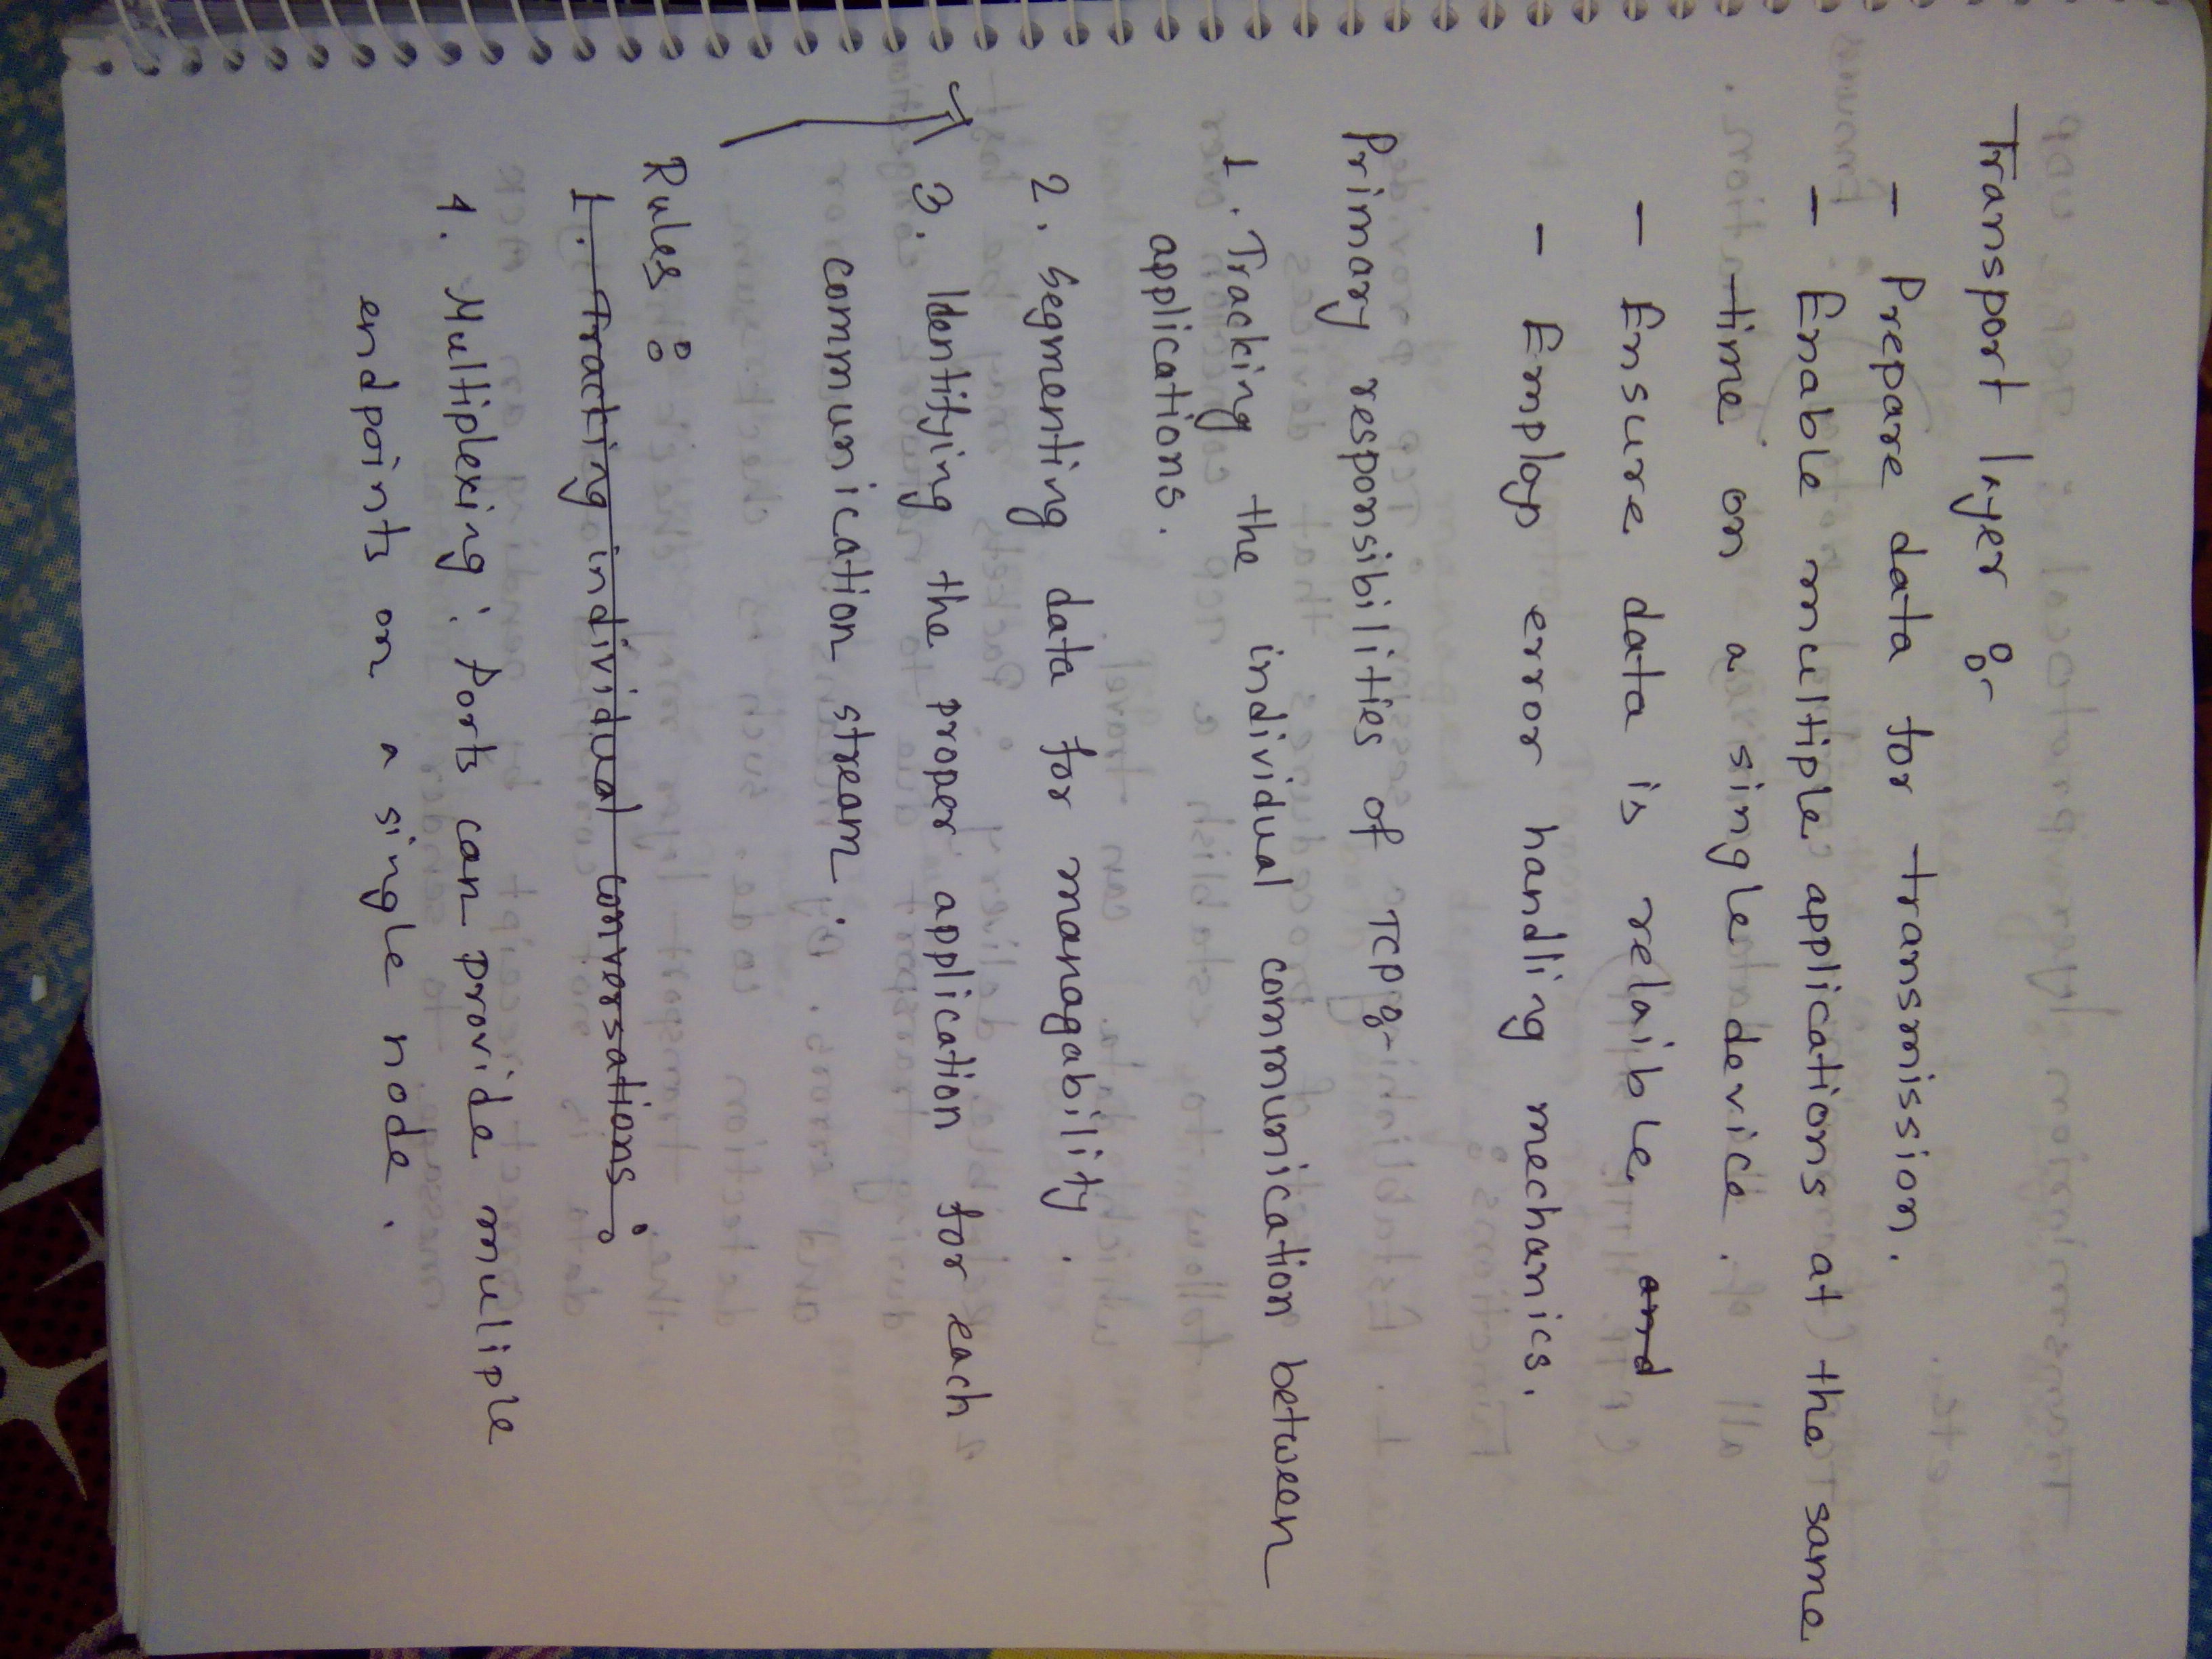 Transport layer :-
- Prepare data for transmission.
- Enable multiple applications at the same
time on a single device.
- Ensure data is relaible and
- Employ error handling mechanics.
Primary responsibilities of TCP :-
1. Tracking the individual communication between
applications.
2. Segmenting data for managability.
3. Identifying the proper application for each
communication stream.
Rules :
1. Tracking individual conversations :
1. Multiplexing : Ports can provide muliple
endpoints on a single node.